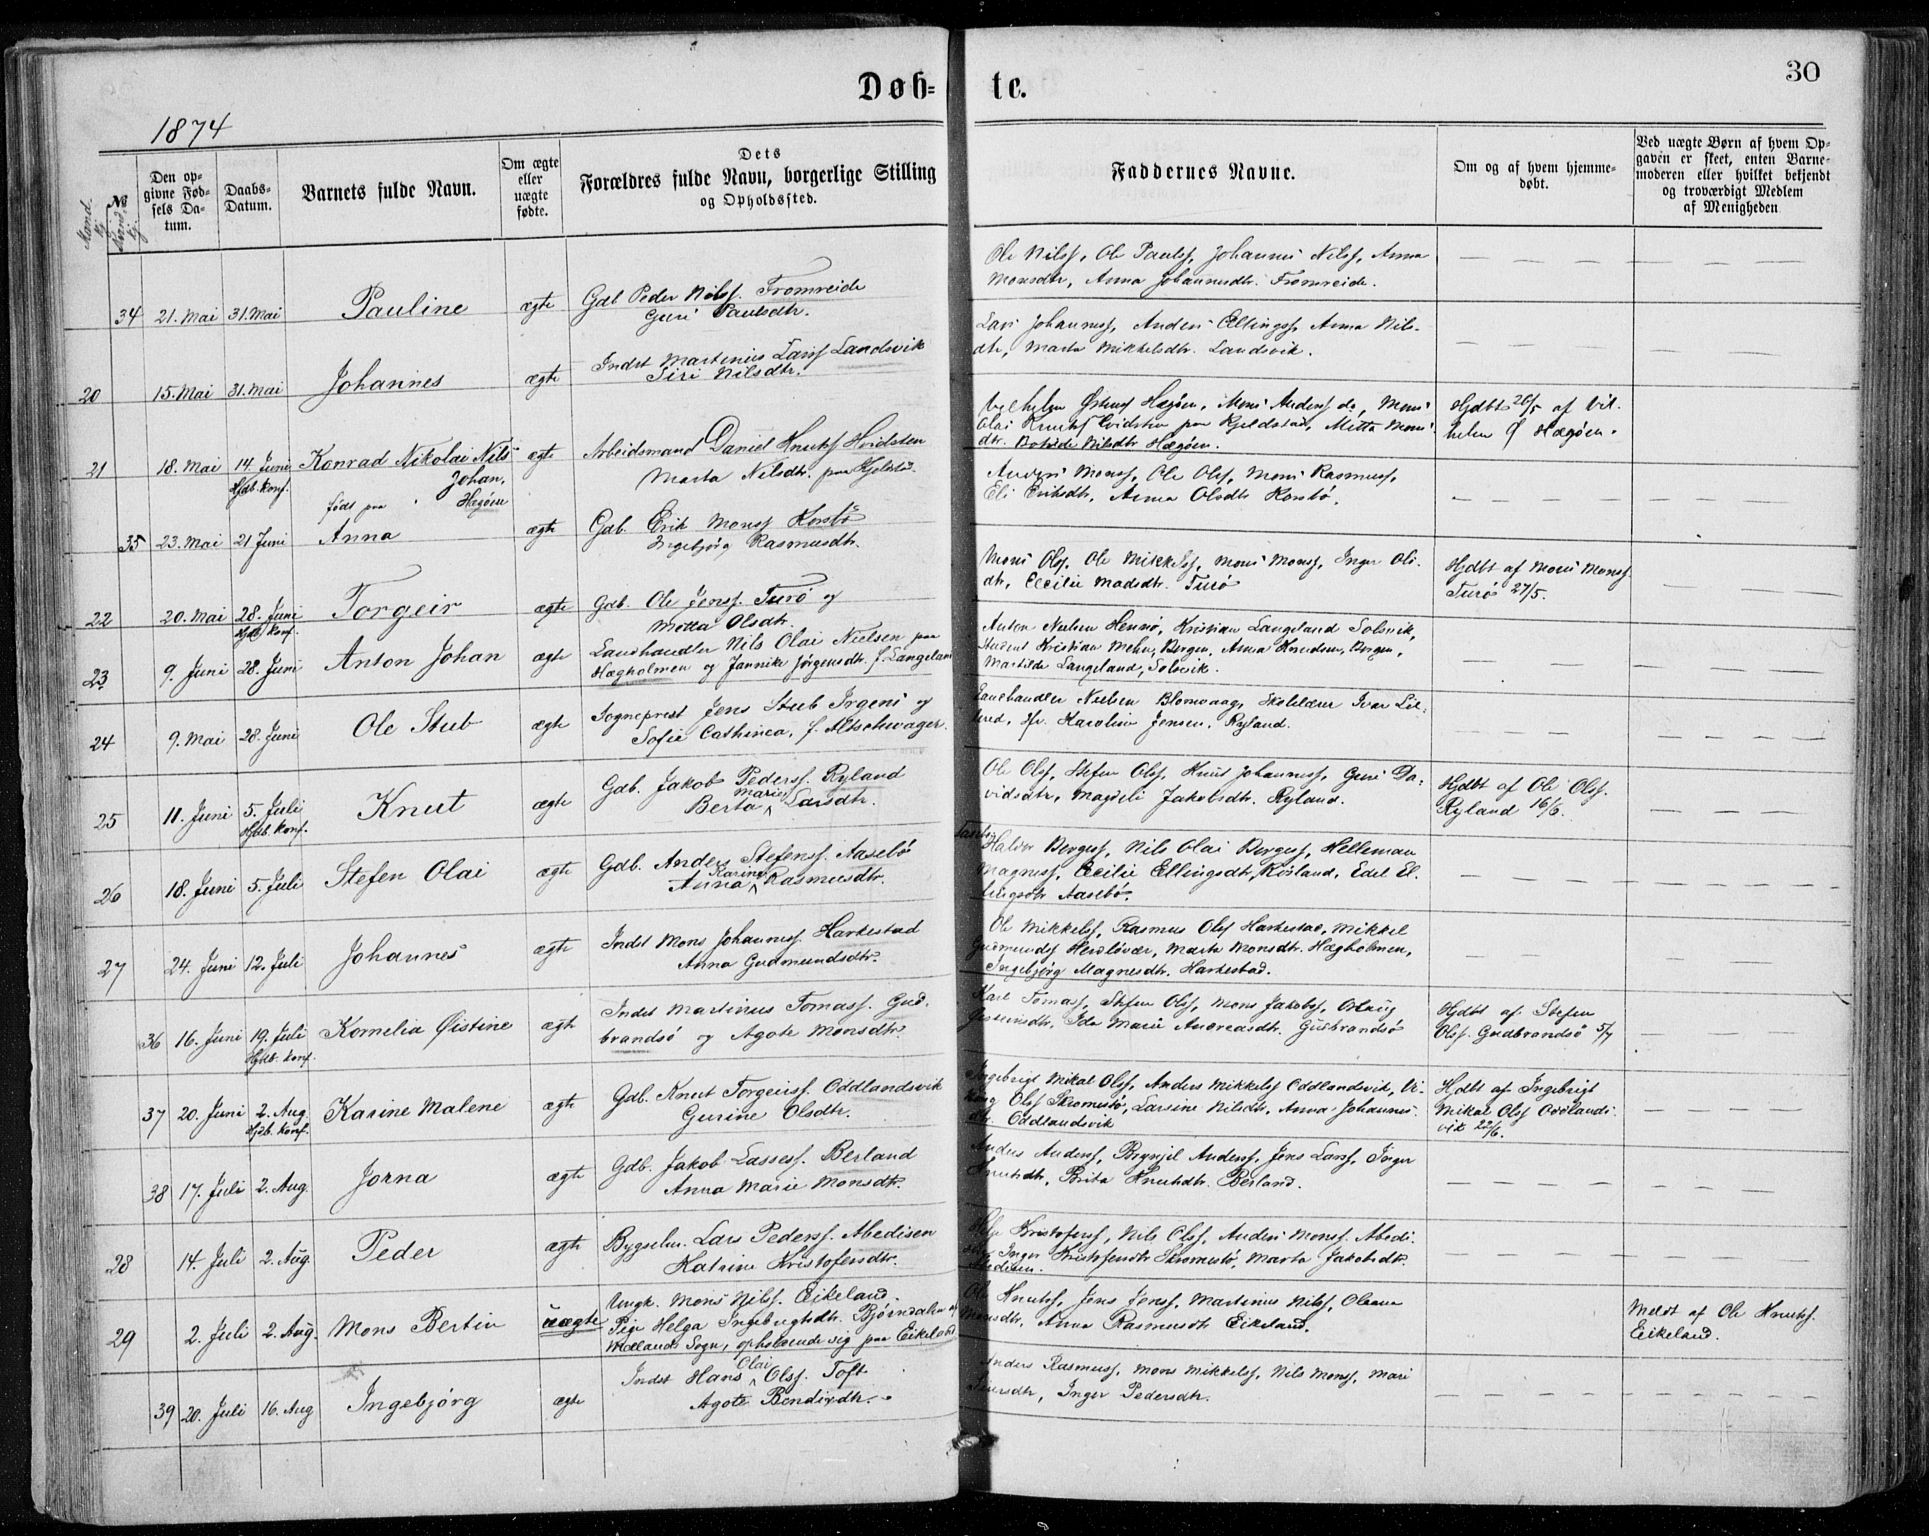 Døb-
te.
30
1874
Mandkj.
№
Kvindkj.
Den op-
givne Fød-
sels Da-
tum.
Daabs-
Datum.
Barnets fulde Navn.
Om ægte
eller
uægte
fødte.
Dets
Forældres fulde Navn, borgerlige Stilling
og Opholdssted.
Faddernes Navne.
Om og af hvem hjemme-
døbt.
Ved uægte Børn af hvem Op-
gaven er skeet, enten Barne-
moderen eller hvilket bekjendt
og troværdigt Medlem
af Menigheden
34 21. Mai 31. Mai Pauline ægte
Gdb Peder Nilss. Fromreide
Guri Paulsdtr.
Ole Nilss, Ole Paulss, Johannes Nilss, Anna
Monsdtr, Anna Johannesdtr. Fromreide.
20 15. Mai 31. Mai Johannes ægte
Indst Martinius Larss Landsvik
Siri Nilsdtr.
Lars Johanness, Anders Ellingss, Anna Nils-
dtr, Marta Mikkelsdtr. Landsvik.
21 18. Mai 14. Juni Konrad Nikolai Nils ægte
Hjdb. konf. Johan,
født paa Hægøen
Arbeidsmand Daniel Knutss Hvidsten
Marta Nilsdtr. paa Kjelstad.
Vilhelm Hægøen, Mons Anderss do, Mons
Olai Knutss Hvidsten paa Kjeldstad, Mitta Mons-
dtr. Botilde Nilsdtr Hægøen.
Hjdbt 26/5 af Vil-
helm Ø Hægøen.
35 23. Mai 21 Juni Anna ægte
Gdb. Erik Monss Korsbø
Ingebjørg Rasmusdtr.
Anders Monss, Ole Olss, Mons Rasmuss,
Eli Eriksdtr, Anna Olsdtr Korsbø.
22 20. Mai 28. Juni Torgeir ægte
Hjdb konf.
Gdb. Ole Jenss. Turø og
Motta Olsdtr.
Mons Olss. Ole Mikkelss, Mons Monss, Inger Ols-
dtr, Cecilie Madsdtr. Turø
Hjdbt af Mons Monss
Turø 27/5.
23 9. Juni 28. Juni Anton Johan ægte
Landhandler Nils Olai Nielsen paa
Hægholmen og Jannike Jørgensdtr. f. Langeland
Anton Nielsen Hennø, Kristian Langeland Solsvik,
Student Kristian Mehn, Bergen, Anna Knudsen, Bergen,
Martilde Langeland, Solsvik.
24 9. Mai 28. Juni Ole Stub ægte
Sogneprest Jens Stub Irgens og
Sofie Cathinca, f. Altschwager.
Landhandler Nielsen Blomvaag, Skolelærer Ivar Lil-
lerud, Fr. Karoline Jensen, Ryland.
25 11. Juni 5. Juli Knut ægte
Hjdb. konf.
Gdb. Jakob Pederss. Ryland
Berta Marie Larsdtr.
Ole Olss, Stefen Olss, Knut Johanness, Guri Da-
vidsdtr, Magdeli Jakobsdtr. Ryland.
Hjdbt af Ole Olss.
Ryland 16/6.
26 18. Juni 5. Juli Stefen Olai ægte
Gdb. Anders Stefenss. Aasebø
Anna Karine Rasmusdtr.
Haldor Bergess, Nils Olai Bergess, Helleman
Magness, Cecilie Ellingsdtr, Røsland, Edel El-
lingsdtr Aasebø.
27 24. Juni 12. Juli Johannes ægte
Indst Mons Johanness. Harkestad
Anna Gudmundsdtr.
Ole Mikkelss, Rasmus Olss Harkestad, Mikkel
Gudmundss Herdlevær, Marta Monsdtr. Hægholmen,
Ingebjørg Magnesdtr. Harkestad.
36 16. Juni 19. Juli Kornelia Øistine ægte
Hjdb. konf.
Indst Martinus Tomass. Gud-
brandsø og Agote Monsdtr.
Karl Tomass, Stefen Olss, Mons Jakobss, Oslaug
Øisteinsdtr, Ida Marie Andreasdtr. Gudbrandsø
Hjdbt af Stefen
Olss. Gudbrandsø 5/7
37 20. Juni 2. Aug. Karine Malene ægte
Hjdb. konf.
Gdb. Knut Torgeirss. Oddlandsvik
Gurine Olsdtr.
Ingebrigt Mikal Olss, Anders Mikkelss Oddlandsvik, Vi-
king Olss Skromestø, Larsine Nilsdtr, Anna Johannes-
dtr. Oddlandsvik
Hjdbt af Ingebrigt
Mikal Olss Oddlands-
vik 22/6.
38 17. Juli 2. Aug. Jorna ægte
Gdb. Jakob Lassess. Berland
Anna Marie Monsdtr.
Anders Anderss, Brynjel Anderss, Jens Larss, Inger
Knutsdtr, Brita Knutsdtr. Berland.
28 14. Juli 2. Aug. Peder ægte
Bygselm. Lars Pederss. Abedisen
Katrine Kristofersdtr.
Helje Kristoferss, Nils Olss, Anders Monss. Abedi-
sen, Inger Kristofersdtr Skromestø, Marta Jakobsdtr.
Abedisen.
29 2. Juli 2. Aug. Mons Bertin uægte
Ungk. Mons Nilss. Eikeland.
Pige Helga Ingebrigtsdtr. Bjørndalen af
Mælands Sogn, opholdende sig paa Eikeland
Ole Knutss, Jens Jenss, Martinus Nilss, Oleana
Monsdtr, Anna Rasmusdtr Eikeland.
Meldt af Ole Knutss.
Eikeland.
39 20. Juli 16. Aug Ingebjørg ægte
Indst Hans Olai Olss. Toft
Agote Bendixdtr.
Anders Rasmuss, Mons Mikkelss, Nils Monss, Mari
Iversdtr, Inger Pedersdtr.